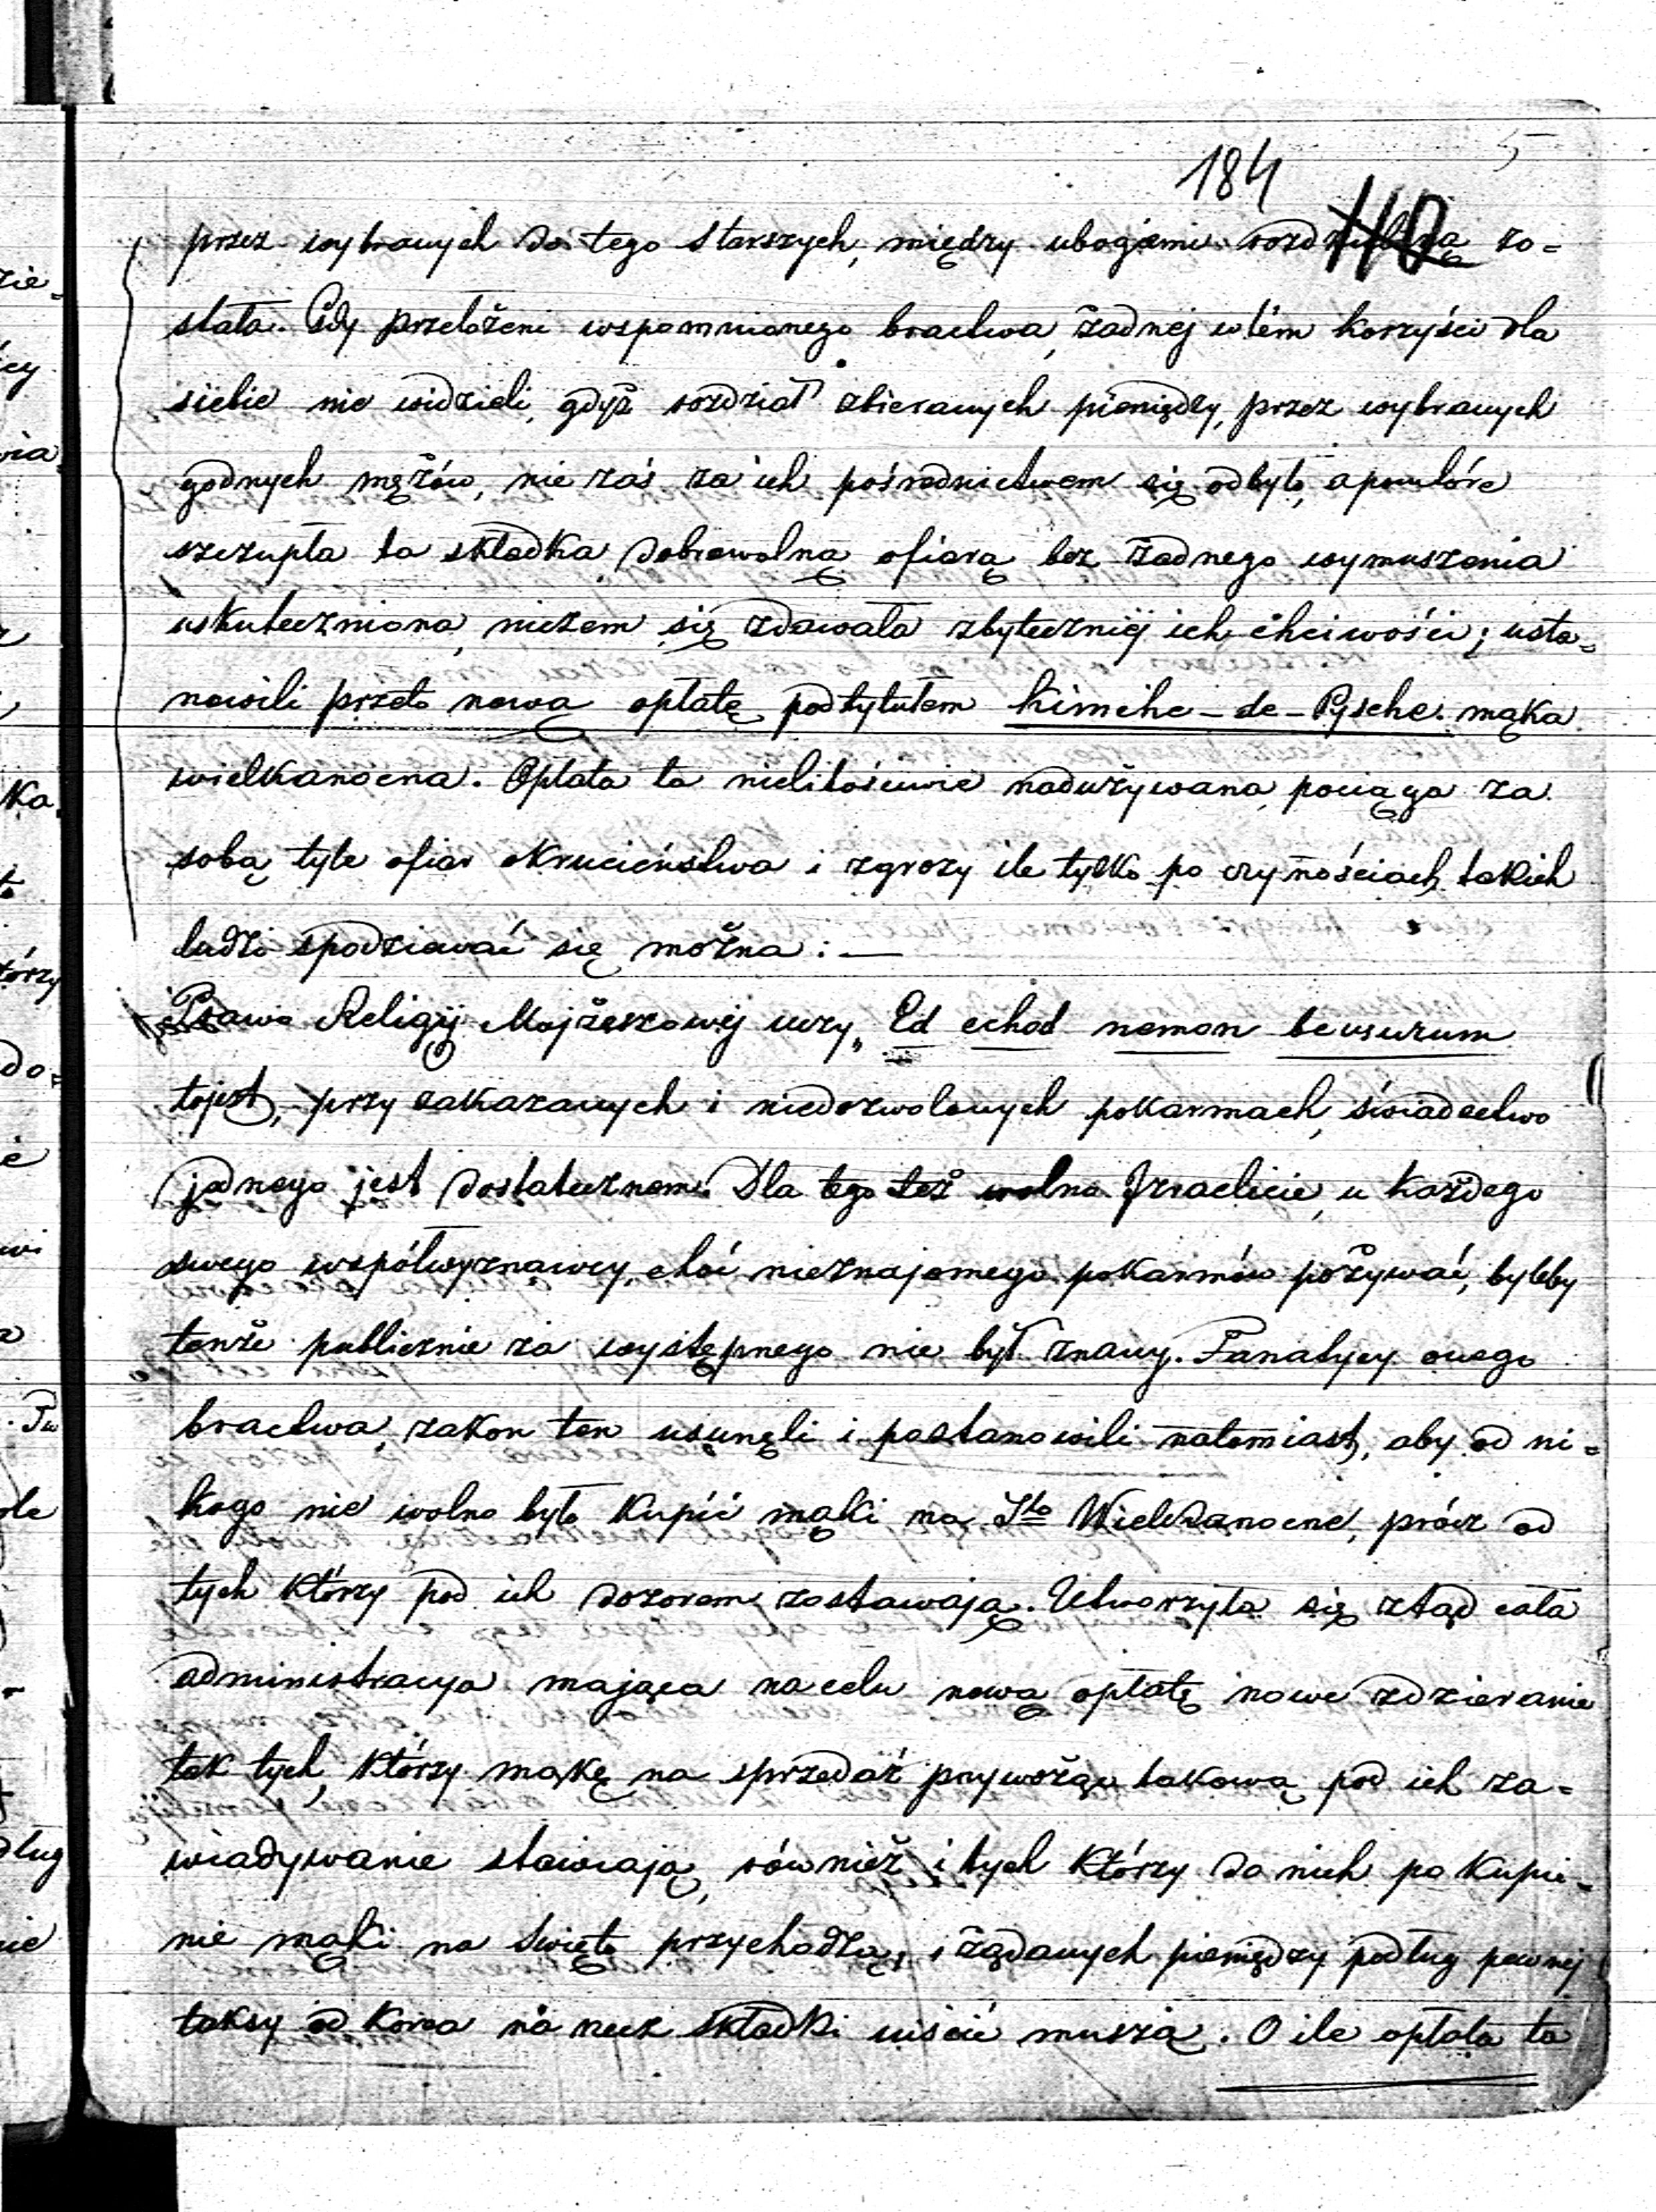 184
5
110
przez wybranych do tego Starszych, między ubogiemi rozdzieloną zo=
stała. Gdy przełożeni wspomnianego bractwa, żadnej w tém korzyści dla
siebie nie widzieli, gdyż rozdział zbieranych pieniędzy, przez wybranych
godnych mężów, nie zaś za ich pośrednictwem się odbył, a powtóre
szczupła ta składka, dobrowolną ofiarą bez żadnego wymuszenia
uskuteczniona, niczem się zdawała zbyteczniéj ich chciwości; usta=
nowili przeto nową opłatę pod tytułem Kimche-de-Pysche. mąka
wielkanocna. Opłata ta nielitościwie nadużywana, pociąga za
sobą tyle ofiar okrucieństwa i zgrozy ile tylko po czynnościach takich
ludzi spodziewać się można: —
Prawo Religij Mojżeszowéj uczy „Ed echod nemon beusurum
to jest, przy zakazanych i niedozwolonych pokarmach, świadectwo
jednego jest dostatecznem. Dla tego też wolno Izraelicie, u każdego
swego współwyznawcy, choć nieznajomego pokarmów pożywać, byleby
tenże publicznie za występnego nie był znany. Fanatycy owego
bractwa, zakon ten usunęli i postanowili natomiast, aby od ni=
kogo nie wolno było kupić mąki na Sto Wielkanocne, prócz od
tych którzy pod ich dozorem zostawają. Utworzyła się ztąd cała
administracya mająca na celu nową opłatę nowe zdzieranie
tak tych, którzy mąkę na sprzedaż przywożąc takową pod ich za=
wiadywanie stawiają, również i tych którzy do nich po kupie=
nie mąki na święta przychodzą, i żądanych pieniędzy podług pewnej
taksy od korca na rzecz składki uiścić muszą. O ile opłata ta